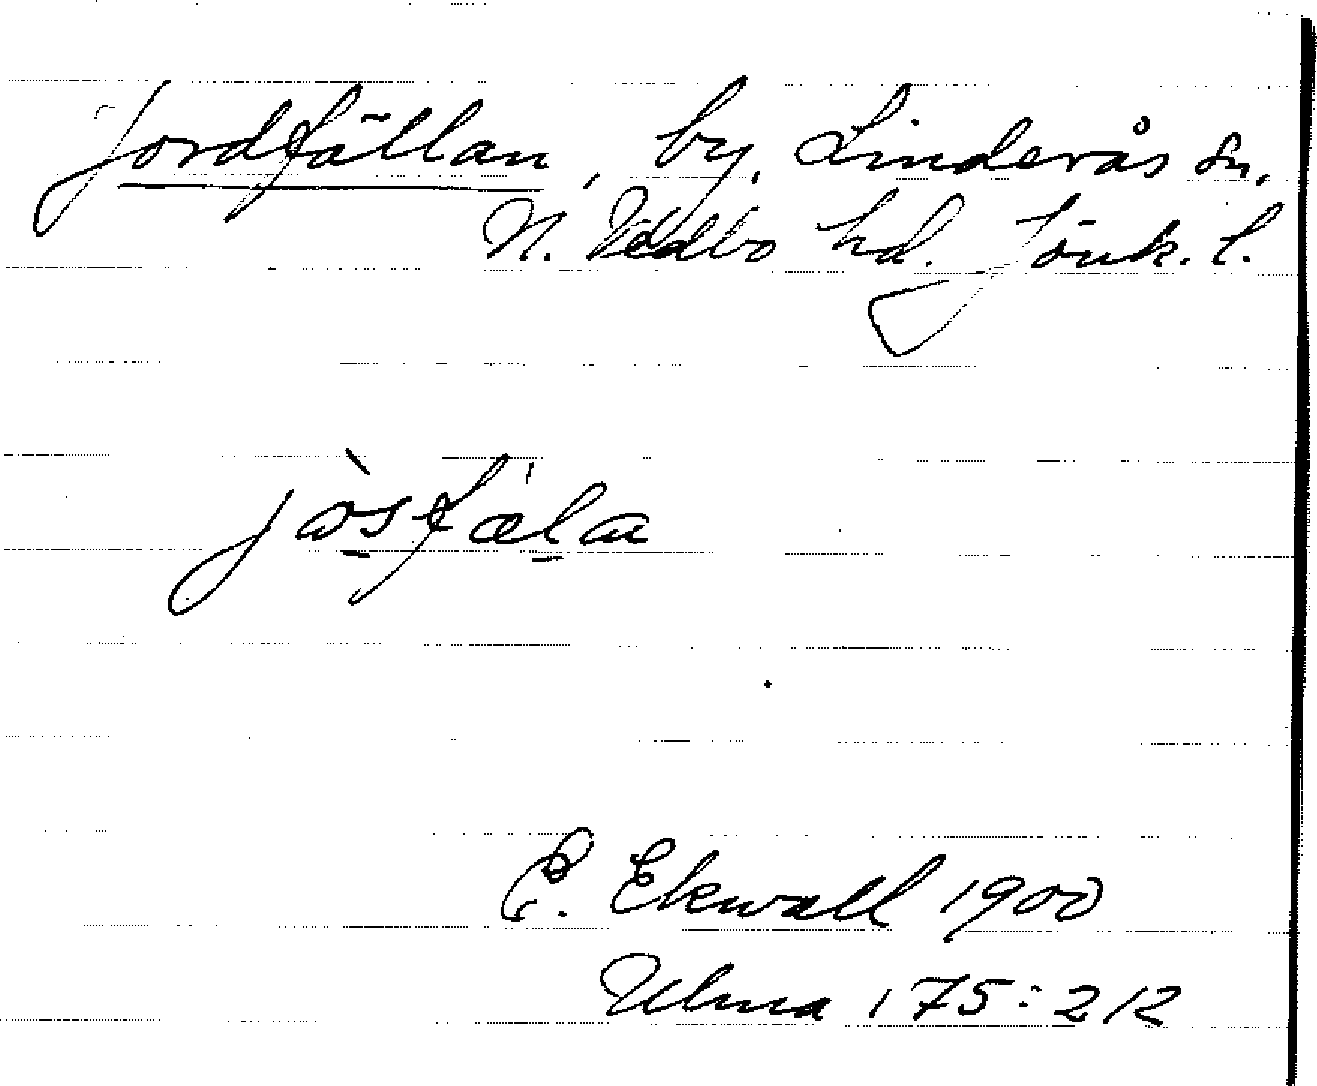 Jordfällan, by, Linderås sn,
N. Vedbo hd. Jönk. l.
jòsfæ̀la
E. Ekwall 1900
Ulma 175:212